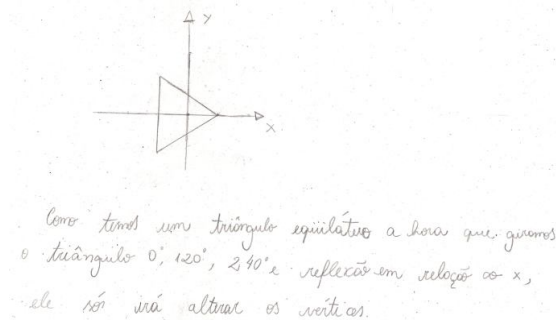 Y
X
Como temos um triângulo eqüilátero a hora que giramos
o triângulo 0°, 120°, 240° e reflexão em relação ao x,
ele só irá alterar os vértices.